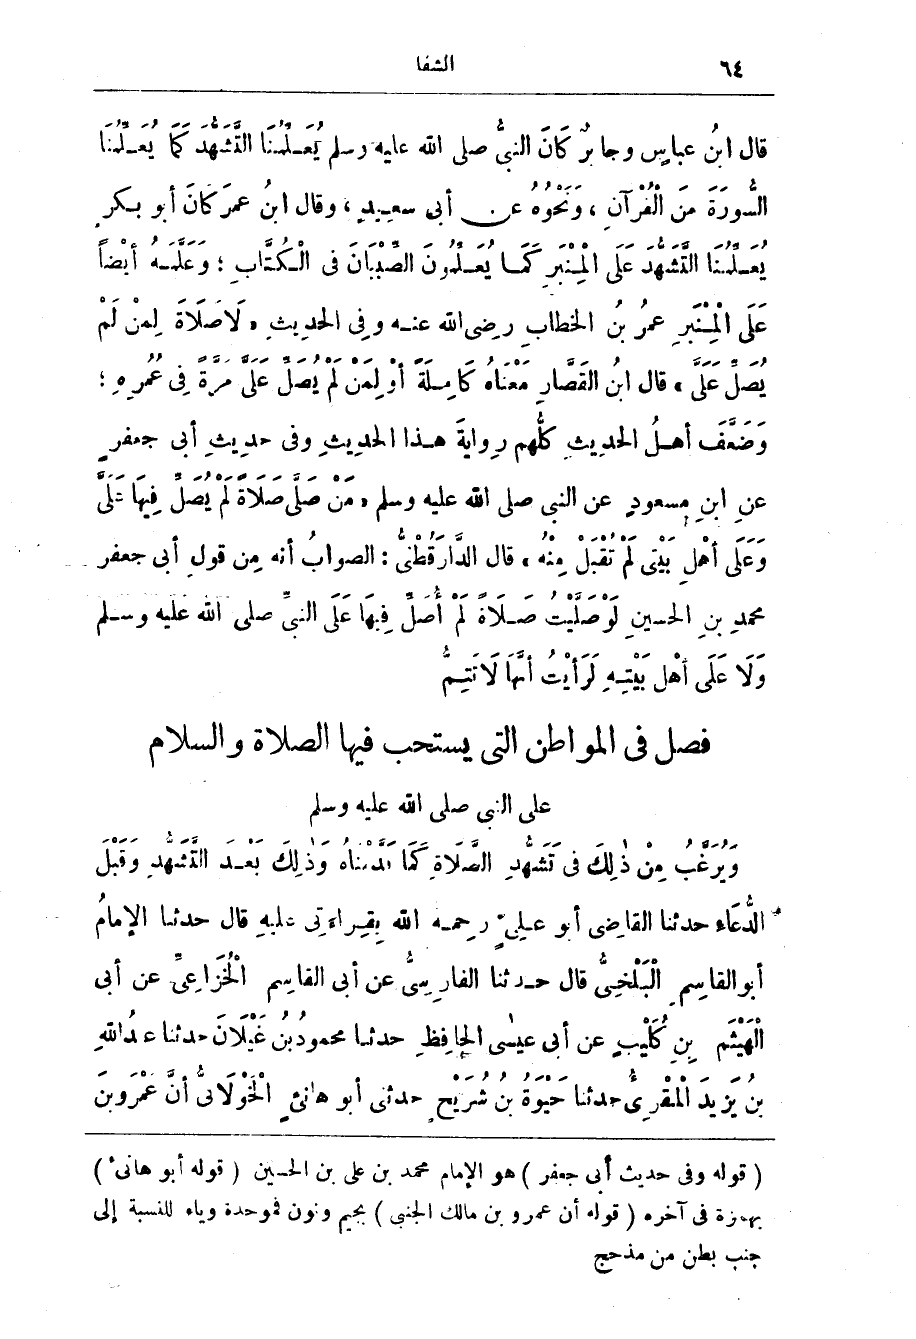 ٦٤
الشفا
قال ابنُ عباسٍ وجابرٌ كَانَ النبىُّ صلى الله عليه وسلم يُعَـلِّمُنَا التَّشَهُّدَ كَمَا يُعَـلِّمُنَا
السُّورَةَ مَنَ الْقُرْآنِ ، وَنَحْوُهُ عن أبى سعيدٍ ، وقال ابنُ عمرَ كَانَ أبو بكرٍ
يُعَـلِّمُنَا التَّشَهُّدَ عَلَى الْمِنْبَرِ كَمَـا يُعَـلِّمُونَ الصِّبْيَانَ فى الْـكُتَّابِ ؛ وَعَلَّمَـهُ أيْضاً
عَلَى الْمِنْبَرِ عمرُ بنُ الخطابِ رضى الله عنـه وفى الحديثِ « لَا صَلَاةَ لِمنْ لَمْ
يُصَلِّ عَلَىَّ » قال ابنُ القَصَّارِ مَعْنَاهُ كَامِـلَةً أوْ لِمَنْ لَمْ يُصَلِّ عَلَىَّ مَرَّةً فِى عُمُرِهِ ؛
وَضَعَّفَ أهـلُ الحديثِ كلُّهم رِوايةَ هـذا الحديثِ وفى حديثِ أبى جعفرٍ
عنِ ابنِ مسعودٍ عن النبى صلى الله عليه وسلم « مَنْ صَلَّى صَلَاةً لَمْ يُصَلِّ فِيهَا عَلَىَّ
وَعَلَى أهْلِ بَيْتِى لَمْ تُقْبَلْ مِنْهُ » قال الدَّارَقُطْنِىُّ : الصوابُ أنه مِن قولِ أبى جعفر
محمدِ بنِ الحسينِ لَوْ صَلَّيْتُ صَـلَاةً لَمْ أُصَلِّ فِيهَا عَلَى النبىِّ صلى الله عليه وسـلم
وَلَا عَلَى أَهْلِ بَيْتِـهِ لَرَأَيْتُ أنَّهَا لَا تَتِمُّ
فصل فى المواطن التى يستحب فيها الصلاة والسلام
على النبى صلى الله عليه وسلم
وَيُرَغَّبُ مِنْ ذٰلِكَ فى تَشَهُّدِ الصَّلَاةِ كَمَا قَدَّمْنَاهُ وَذٰلِكَ بَعْـدَ التَّشَهُّدِ وَقَبْلَ
الدُّعَاءِ حدثنا القاضِى أبو عـلِىٍّ رحمـه الله بِقِـراءَتِى عليهِ قال حدثنـا الإمامُ
أبو القاسِمِ الْبَلْخِىُّ قال حـدثنا الفارِسِىُّ عن أبى القاسِمِ الْخُزَاعِىِّ عن أبى
الْهَيْثَمِ بنِ كُلَيْبٍ عن أبى عيسٰى الحافِظِ حدثنـا محمودُ بنُ غَيْلَانَ حدثنا عبدُ اللهِ
بنُ يَزِيدَ الْمُقْرِىُّ حدثنا حَيْوَةُ بنُ شُرَيْحٍ حدثنى أبو هانِئٍ الْخَوْلَانِىُّ أنَّ عَمْرَو بنَ
( قوله وفى حديث أبى جعفر ) هو الإمام محمد بن على بن الحسين ( قوله أبو هانئ )
بهمزة فى آخره ( قوله أن عمرو بن مالك الجنبى ) بجيم ونون فموحدة وياء للنسبة إلى
جنب بطن من مذحج